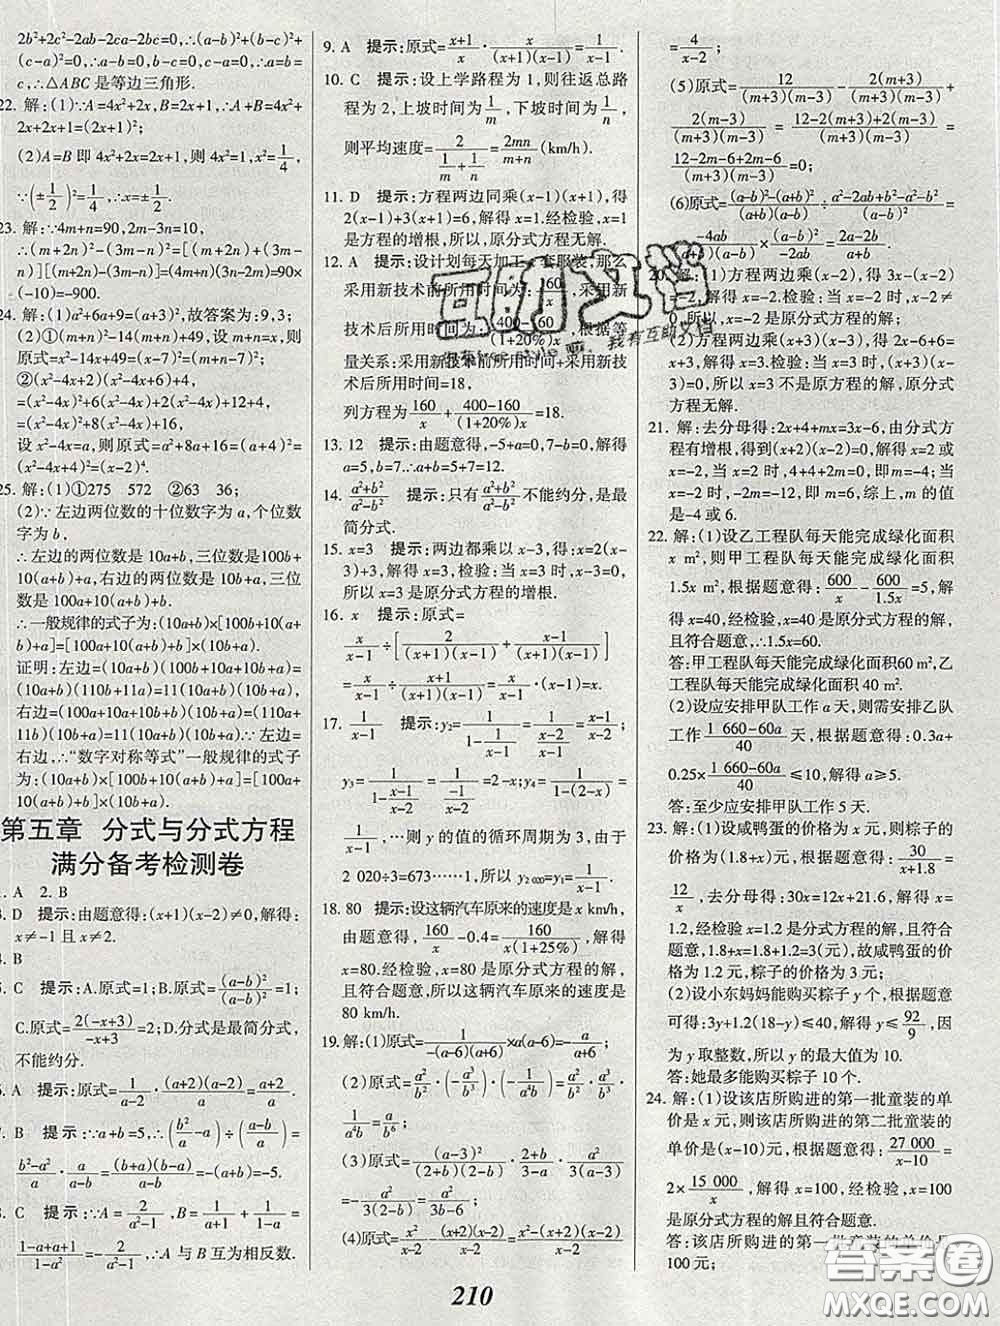 2b²+2c²-2ab-2ca-2bc=0,∴(a-b)²+(b-c)²+
(c-a)²=0,∴a-b=0,b-c=0,c-a=0,∴a=b=
c,∴△ABC是等边三角形.
22. 解:(1)∵A=4x²+2x,B=2x+1,∴A+B=4x²+
2x+2x+1=(2x+1)²;
(2)A=B 即 4x²+2x=2x+1,则 4x²=1,x²=1/4,
∵(±1/2)²=1/4,∴x=±1/2.
23. 解:∵4m+n=90,2m-3n=10,
∴(m+2n)²-(3m-n)²=[(m+2n)+(3m-
n)][(m+2n)-(3m-n)]=(4m+n)(3n-2m)=90×
(-10)=-900.
24. 解:(1)a²+6a+9=(a+3)²,故答案为:9,3;
(2)①(m+n)²-14(m+n)+49,设 m+n=x,则
原式=x²-14x+49=(x-7)²=(m+n-7)²;
②(x²-4x+2)(x²-4x+6)+4
=(x²-4x)²+6(x²-4x)+2(x²-4x)+12+4
=(x²-4x)²+8(x²-4x)+16,
设 x²-4x=a,则原式=a²+8a+16=(a+4)²=
(x²-4x+4)²=(x-2)⁴.
25. 解:(1)①275 572 ②63 36;
(2)∵左边两位数的十位数字为 a,个位数
字为 b,
∴左边的两位数是 10a+b,三位数是 100b+
10(a+b)+a,右边的两位数是 10b+a,三位
数是 100a+10(a+b)+b.
∴一般规律的式子为:(10a+b)×[100b+10(a
+b)+a]=[100a+10(a+b)+b]×(10b+a).
证明:左边=(10a+b)(100b+10a+10b+a)=
(10a+b)(110b+11a)=11(10a+b)(10b+a),
右边=(100a+10a+10b+b)(10b+a)=(110a+
11b)(10b+a)=11(10a+b)(10b+a).∵左边=
右边,∴“数字对称等式”一般规律的式子
为:(10a+b)×[100b+10(a+b)+a]=[100a+
10(a+b)+b]×(10b+a).
第五章 分式与分式方程
满分备考检测卷
A 2. B
D 提示:由题意得:(x+1)(x-2)≠0,解得:
x≠-1 且 x≠2.
B
C 提示:A.原式=1;B.原式=(a-b)²/(a-b)²=1;
C.原式=2(-x+3)/(-x+3)=2;D.分式是最简分式,
不能约分.
A 提示:原式=1/(a-2)·(a+2)(a-2)/a=(a+2)/a.
B 提示:∵a+b=5,∴(b²/a-a)÷(a-b)/a=
(b²-a²)/a·a/(a-b)=(b+a)(b-a)/(a-b)=-(a+b)=-5.
C 提示:∵A=2/(a²-1),B=1/(a+1)+1/(1-a)=
(1-a+a+1)/(1-a²)=-2/(a²-1),∴A 与 B 互为相反数.
9. A 提示:原式=(x+1)/x·x/((x+1)(x-1))=1/(x-1).
10. C 提示:设上学路程为 1,则往返总路
程为 2,上坡时间为1/m,下坡时间为1/n,
则平均速度=2/(1/m+1/n)=2mn/(m+n)(km/h).
11. D 提示:方程两边同乘(x-1)(x+1),得
2(x-1)+3(x+1)=6,解得 x=1.经检验,x=1
是方程的增根,所以,原分式方程无解.
12. A 提示:设计划每天加工 x 套服装,那么
采用新技术前所用时间为:160/x,采用新
技术后所用时间为:(400-160)/((1+20%)x),根据等
量关系:采用新技术前所用时间+采用新技
术后所用时间=18,
列方程为160/x+(400-160)/((1+20%)x)=18.
13. 12 提示:由题意得,-5+a=0,7-b=0,解得
a=5,b=7.∴a+b=5+7=12.
14. (a²+b²)/(a²-b²) 提示:只有(a²+b²)/(a²-b²)不能约分,是最
简分式.
15. x=3 提示:两边都乘以 x-3,得:x=2(x-
3)+3,解得 x=3,检验:当 x=3 时,x-3=0,
所以 x=3 是原分式方程的增根.
16. x 提示:原式=
x/(x-1)÷[2/((x+1)(x-1))+(x-1)/((x+1)(x-1))]
=x/(x-1)÷(x+1)/((x+1)(x-1))=x/(x-1)·(x-1)=x.
17. 1/(x-1) 提示:y₂=1/(1/(x-1)-1)=1/((2-x)/(x-1))=(x-1)/(2-x);
y₃=1/(1-1/(x-1))=2-x;y₄=1/(1-(2-x))=
1/(x-1),…,则 y 的值的循环周期为 3,由于
2 020÷3=673……1,所以 y₂₀₂₀=1/(x-1).
18. 80 提示:设这辆汽车原来的速度是 x km/h,
由题意得,160/x-0.4=160/(x(1+25%)),解得
x=80.经检验,x=80 是原分式方程的解,
且符合题意,所以这辆汽车原来的速度是
80 km/h.
19. 解:(1)原式=1/(-(a-6)(a+6))×a(a-6)=-a/(a+6);
(2)原式=a²/b²·(-a³/b³)·(-b⁴/a⁴)=
1/a⁴·a⁵/b⁶=a/b⁶;
(3)原式=(a-3)²/((2+b)(2-b))·(2+b)/(3-a)·a²/(3(a-3))
=-a²/(3(2-b))=a²/(3b-6);
(4)原式=x²/(x-2)-(x+2)(x-2)/(x-2)=(x²-(x+2)(x-2))/(x-2)
=4/(x-2);
(5)原式=12/((m+3)(m-3))-2(m+3)/((m+3)(m-3))+
2(m-3)/((m+3)(m-3))=(12-2(m+3)+2(m-3))/((m+3)(m-3))=
(12-2m-6+2m-6)/((m+3)(m-3))=0;
(6)原式=((a-b)²-(a+b)²)/((a+b)(a-b))÷(a²-2ab+b²-a²-b²)/(a-b)²=
-4ab/((a+b)(a-b))×(a-b)²/(-2ab)=(2a-2b)/(a+b).
20. 解:(1)方程两边乘(x-2),得 3x-(x-2)=
0,所以,x=2.检验:当 x=2 时,x-2≠
0,所以,原方程的解是
(2)方程两边乘(x+3),得:2x-(x+3)=0,
x=3.检验:当 x=3 时,(x+3)(x-3)=
0,所以 x=3 不是原方程的解,原分式
方程无解.
21. 解:去分母得:2x+4+mx=3x-6,由分式方
程有增根,得到(x+2)(x-2)=0,解得:x=2
或 x=-2,当 x=2 时,4+4+2m=0,即 m=-4;
当 x=-2 时,-2m=-12,即 m=6,综上,m 的值
是-4 或 6.
22. 解:(1)设乙工程队每天能完成绿化面积
x m²,则甲工程队每天能完成绿化面积
1.5x m²,根据题意得:600/x-600/1.5x=5,解
得:x=40,经检验,x=40 是原分式方程的解,
且符合题意,∴1.5x=60.
答:甲工程队每天能完成绿化面积60 m²,乙
工程队每天能完成绿化面积 40 m².
(2)设应安排甲队工作 a 天,则需安排乙队
工作(1 660-60a)/40天,根据题意得:0.3a+
0.25×(1 660-60a)/40≤10,解得 a≥5.
答:至少应安排甲队工作 5 天.
23. 解:(1)设咸鸭蛋的价格为 x 元,则粽子的
价格为(1.8+x)元,根据题意得:30/(x+1.8)=
12/x,去分母得:30x=12x+21.6,解得 x=
1.2,经检验 x=1.2 是分式方程的解,且符合
题意,1.8+x=1.8+1.2=3(元),故咸鸭蛋的价
格为 1.2 元,粽子的价格为 3 元;
(2)设小东妈妈能购买粽子 y 个,根据题意
可得:3y+1.2(18-y)≤40,解得 y≤92/9,因
为 y 取整数,所以 y 的最大值为 10.
答:她最多能购买粽子 10 个.
24. 解:(1)设该店所购进的第一批童装的单
价是 x 元,则该店所购进的第二批童装的
单价为(x-10)元,根据题意得:27 000/(x-10)=
2×15 000/x,解得 x=100,经检验,x=100
是原分式方程的解且符合题意.
答:该店所购进的第一批童装的单价是
100 元;
210
互助文档
我有互助文档
答案圈
MXQE.COM